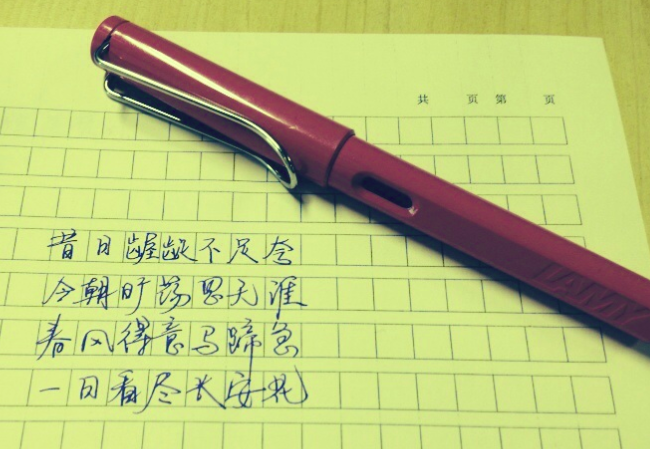 共 页 第 页
昔日龌龊不足夸
今朝旷荡思无涯
春风得意马蹄急
一日看尽长安花
LAMY